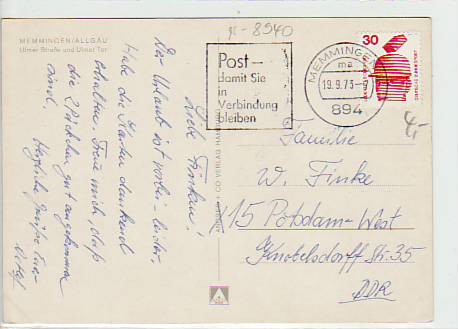 MEMMINGEN/ALLGÄU
Ulmer Straße und Ulmer Tor
-8940
Post–
damit Sie
in
Verbindung
bleiben
MEMMINGEN
ma
19.9.73-
894
30
DEUTSCHE BUNDESPOST
4,-
Liebe Finkes!
Der Urlaub ist vorbei - leider,
Habe die Karten dankend
erhalten. Freue mich, daß
die 2 Päckchen gut angekommen
sind.
Herzliche Grüße Eure
Familie
W. Finke
15 Potsdam-West
Knobelsdorff Str. 35
DDR